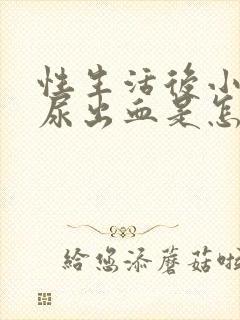 性生活後小
尿出血是怎
給您添蘑菇啦